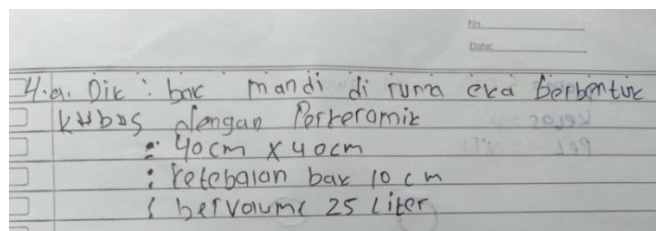 No.
Date:
4.a. Dik : bak mandi di ruma eka berbentuk
kubus dengan Perkeramik
: 40 cm x 40 cm
: ketebalan bak 10 cm
: bervolume 25 Liter